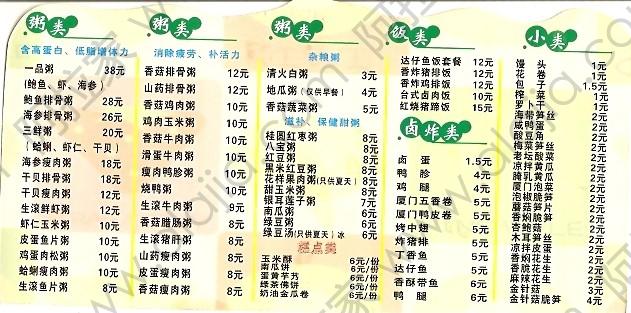 粥类
含高蛋白、低脂增体力
一品粥 38元
(鲍鱼、虾、海参)
鲍鱼排骨粥 28元
海参排骨粥 26元
三鲜粥 20元
(蛤蜊、虾仁、干贝)
海参瘦肉粥 18元
干贝排骨粥 18元
干贝瘦肉粥 12元
生滚鲜虾粥 12元
虾仁玉米粥 10元
皮蛋鱼片粥 10元
鸡蛋肉松粥 10元
蛤蜊瘦肉粥 10元
生滚鱼片粥 8元
粥类
消除疲劳、补活力
香菇排骨粥 12元
山药排骨粥 12元
香菇鸡肉粥 10元
鸡肉玉米粥 10元
香菇牛肉粥 10元
滑蛋牛肉粥 10元
瘦肉鸭胗粥 10元
烧鸭粥 10元
生滚牛肉粥 9元
香菇腊肠粥 8元
生滚猪肝粥 8元
山药瘦肉粥 8元
皮蛋瘦肉粥 8元
香菇瘦肉粥 8元
粥类
杂粮粥
清火白粥 3元
地瓜粥(仅供早餐) 4元
香菇蔬菜粥 5元
滋补、保健甜粥
桂圆红枣粥 8元
八宝粥 8元
红豆粥 8元
黑米红豆粥 8元
花样果肉粥(只供夏天) 8元
甜玉米粥 8元
银耳莲子粥 7元
南瓜粥 6元
绿豆粥 6元
绿豆汤(只供夏天)冰 6元
糕点类
玉米酥 6元/份
南瓜饼 6元/份
蛋黄芋艿 6元/份
绿茶佛饼 6元/份
奶油金瓜卷 6元/份
饭类
达仔鱼饭套餐 12元
香炸猪排饭 12元
香炸鸡排饭 12元
台式卤肉饭 10元
红烧猪蹄饭 15元
卤炸类
卤蛋 1.5元
鸭胗 4元
鸡腿 4元
厦门五香卷 5元
厦门鸭皮卷 5元
烤中翅 5元
炸猪排 5元
丁香鱼 5元
达仔鱼 6元
香酥带鱼 6元
鸭腿 6元
小类
馒头 1元
花卷 1元
包子 1.5元
榨菜 1元
萝卜干 1元
海带笋丝 2元
咸鸭蛋 2元
酸豆角 2元
梅菜笋丝 2元
老坛酸菜 2元
凉拌黄瓜 2元
腌乳黄瓜 2元
厦门泡菜 2元
泡椒脆笋 2元
蘑菇笋片 2元
香焖脆笋 2元
杏鲍菇 2元
木耳笋丝 2元
凉拌皮蛋 2元
香焖花生 2元
香脆花生 2元
麻辣花生 2元
金针菇 3元
金针菇脆笋 4元